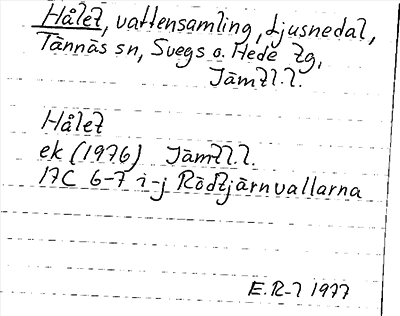 Hålet, vattensamling, Ljusnedal,
Tännäs sn, Svegs o. Hede tg,
Jämtl.l.
Hålet
ek (1976) Jämtl.l.
17C 6-7 i-j Rödtjärnvallarna
E.R-l 1977